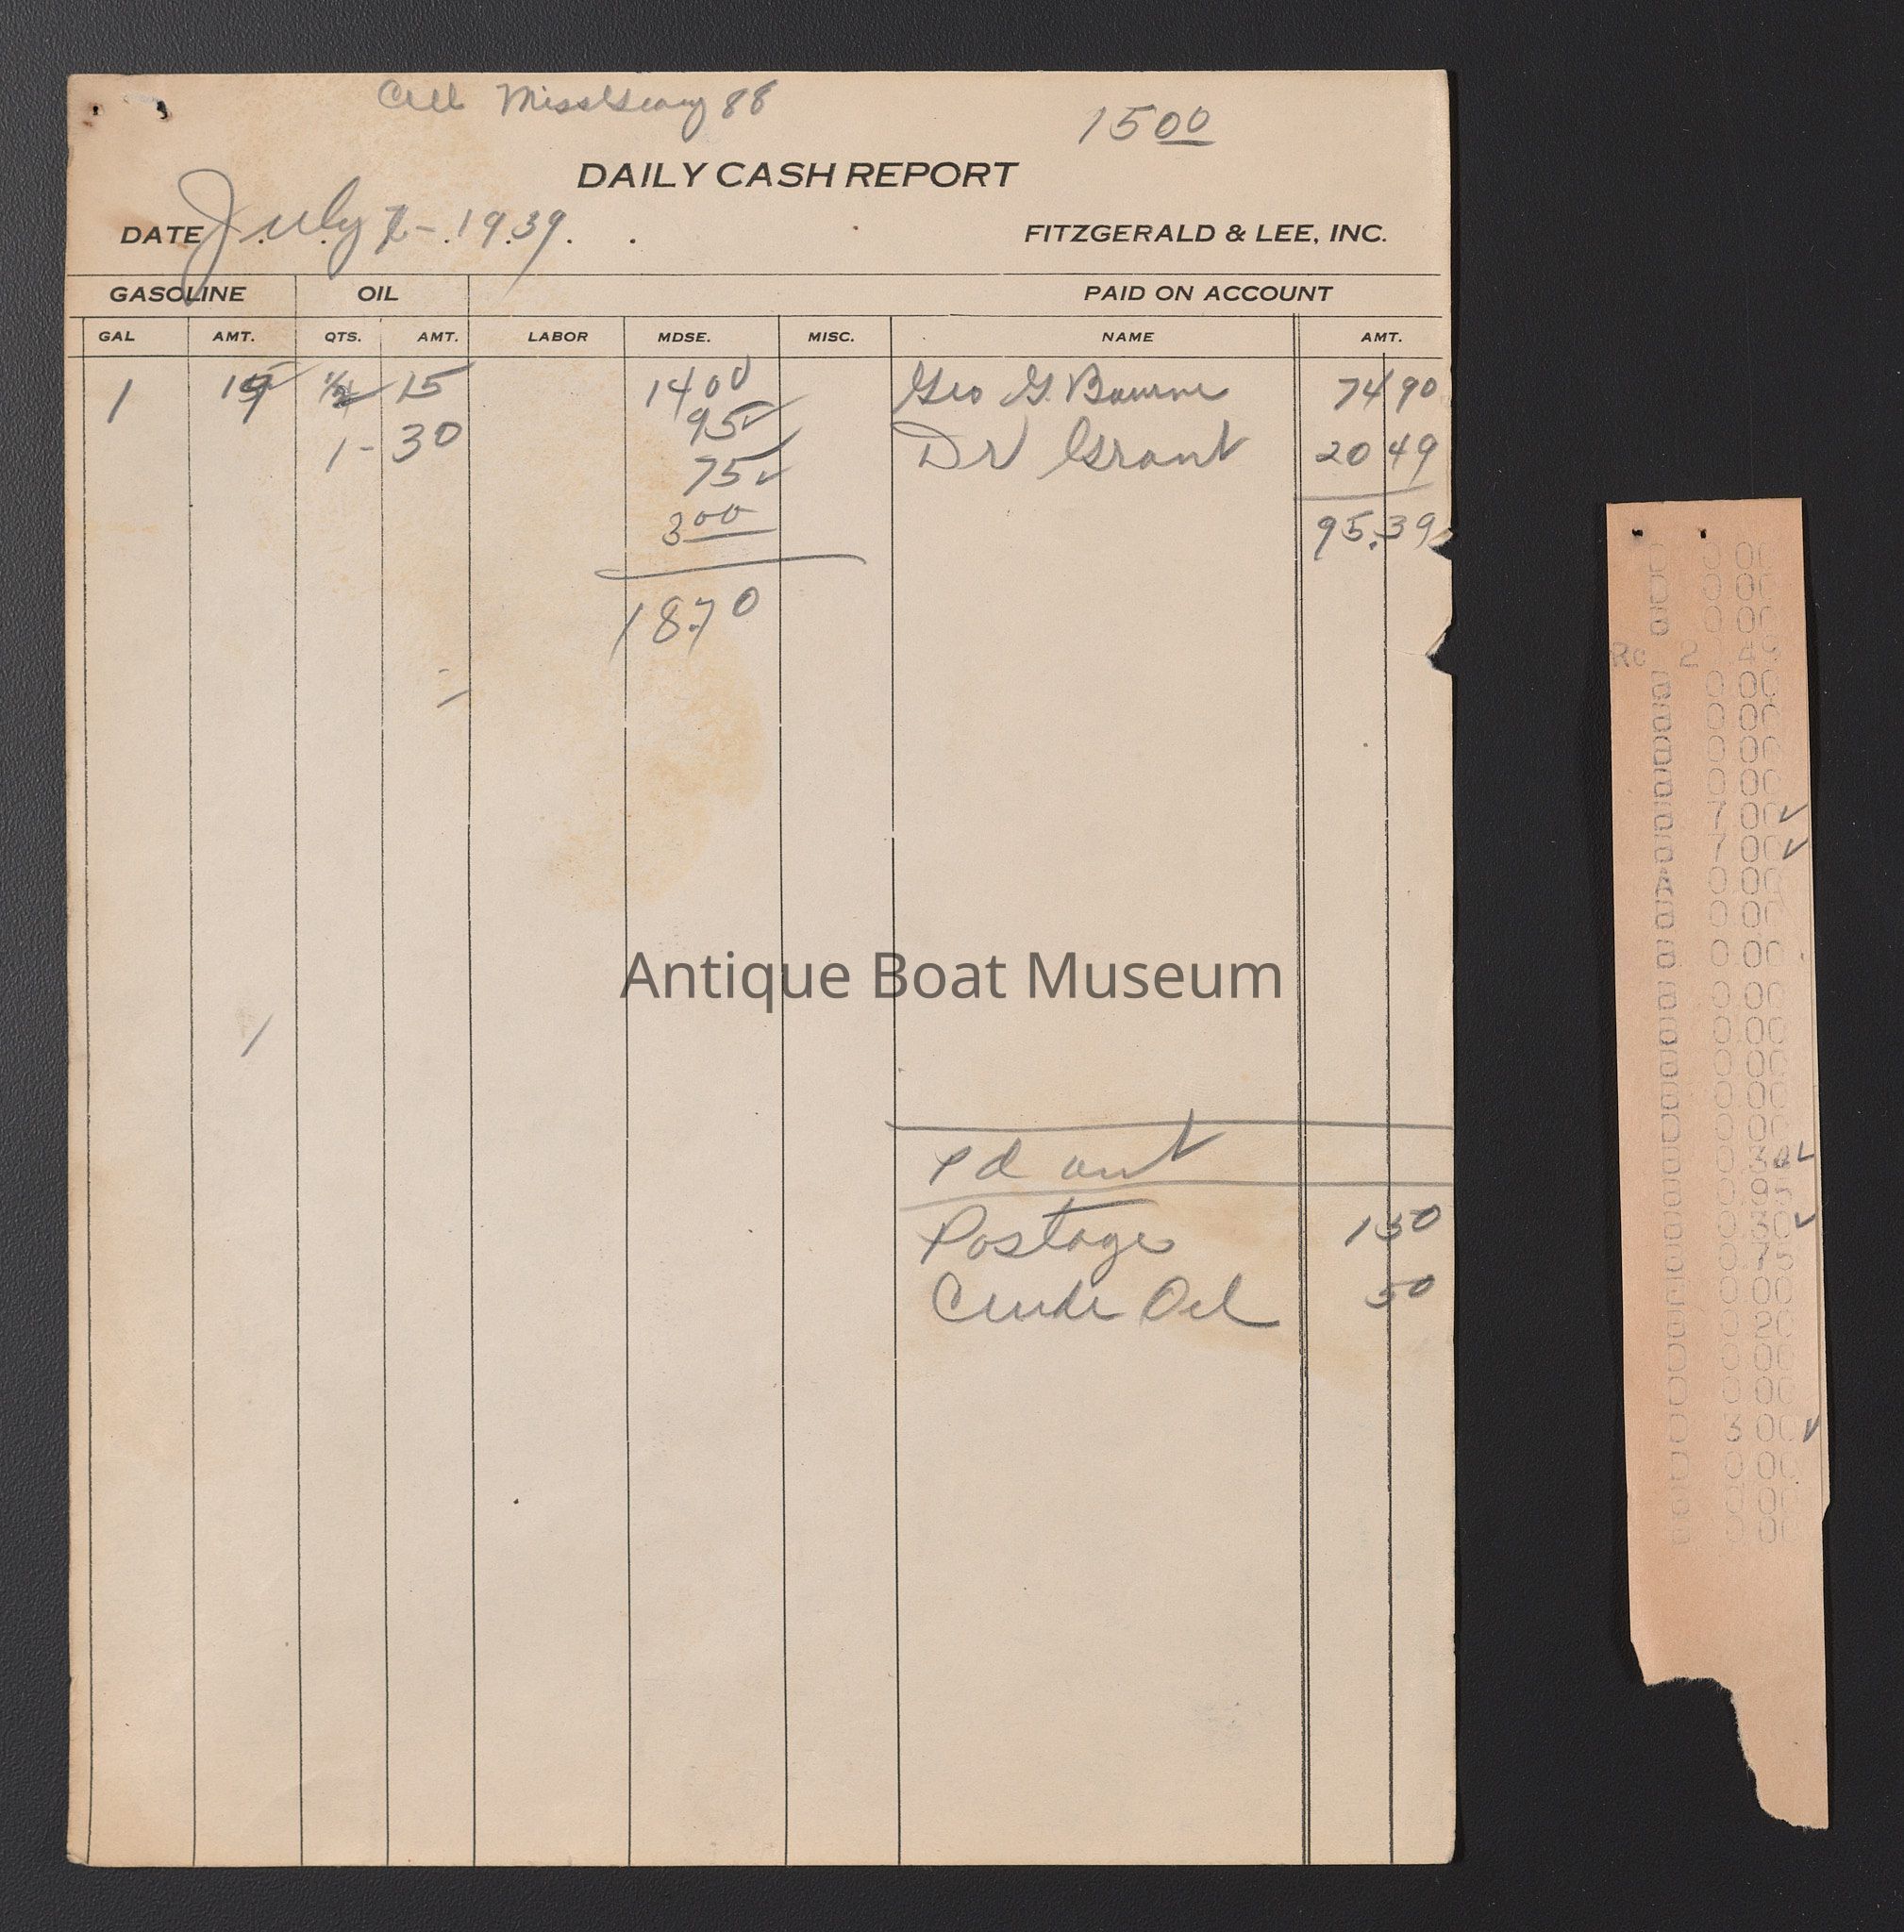 Call Miss 88
15 00
DAILY CASH REPORT
DATE July - 1939.
FITZGERALD & LEE, INC.
GASOLINE OIL PAID ON ACCOUNT
GAL AMT. QTS. AMT. LABOR MDSE. MISC. NAME AMT.
1 1/2 15 14 00 Geo G. Bourne 74 90
95
1- 30 Dr Grant 20 49
75
3 00
95.39
18.70
Antique Boat Museum
Pd out
Postage 1 50
Crude Oil 50
0 00
0 00
0 00
Rc 2 49
0 00
0 00
0 00
0 00
7 00
7 00
0 00
0 00
0 00
0 00
0 00
0 00
0 00
0 00
0 30
0 95
0 30
0 75
0 00
0 20
0 00
0 00
3 00
0 00
0 00
0 00